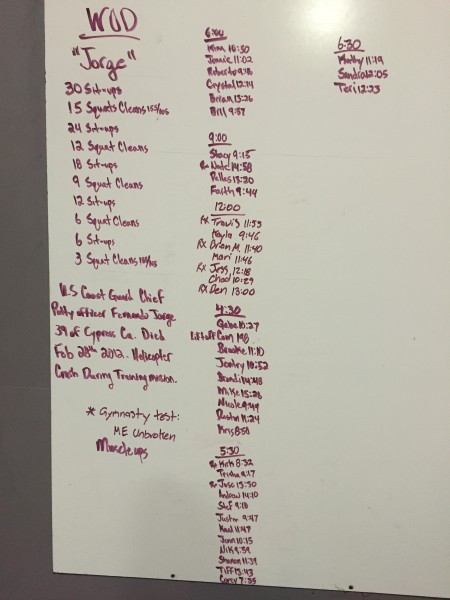 WOD
"Jorge"
30 Sit-ups
15 Squats Cleans 155/105
24 Sit-ups
12 Squat Cleans
18 Sit-ups
9 Squat Cleans
12 Sit-ups
6 Squat Cleans
6 Sit-ups
3 Squat Cleans 155/105
U.S Coast Guard Chief
Petty officer Fernando Jorge
39 of Cypress Ca. Died
Feb 28th 2012. Helicopter
Crash During Training mission.
* Gymnasty test:
ME Unbroken
Muscle ups
6:00
10:30
Jamie 11:02
Roberto 9:18
Crystal 12:14
Brian 13:26
Bill 9:57
9:00
Stacy 9:15
Rx Nate 14:58
Dallas 13:20
Faith 9:44
12:00
Rx Travis 11:55
Kayla 9:46
Rx Brian M. 11:40
Mari 11:46
Rx Jess 12:18
Chad 10:29
Rx Den 13:00
4:30
Gabe 10:27
Cam
Brooke 11:10
Jentry 10:52
Brandi 14:48
Mike 15:28
Nicole 9:49
Dustin 11:24
Kris 8:50
5:30
Rx Kirk 8:32
Trisha 9:17
Rx Jose 13:30
Andrew 14:10
Stef 9:18
Justin 9:47
11:47
Jenn 10:15
Nik 9:59
Sharon 11:39
Tiff 13:43
Corey 7:55
6:30
Marthy 11:19
Sandra 12:05
Teri 12:23